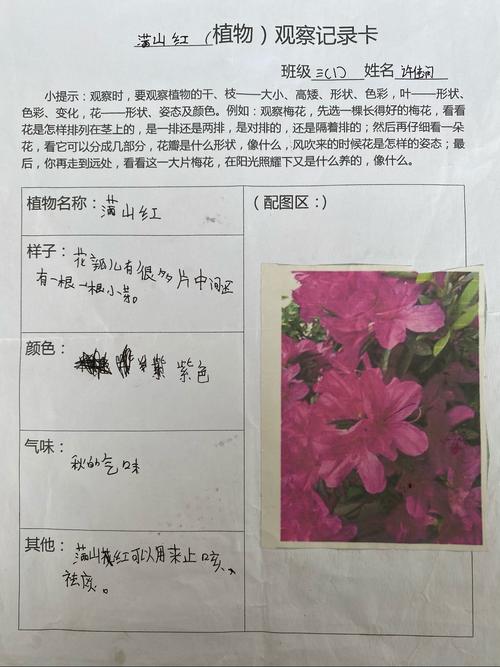 满山红（植物）观察记录卡
班级 三（1） 姓名 许
小提示：观察时，要观察植物的干、枝——大小、高矮、形状、色彩，叶——形状、
色彩、变化，花——形状、姿态及颜色。例如：观察梅花，先选一棵长得好的梅花，看看
花是怎样排列在茎上的，是一排还是两排，是对排的，还是隔着排的；然后再仔细看一朵
花，看它可以分成几部分，花瓣是什么形状，像什么，风吹来的时候花是怎样的姿态；最
后，你再走到远处，看看这一大片梅花，在阳光照耀下又是什么养的，像什么。
植物名称：满山红
（配图区：）
样子：花瓣儿有很多片中间还
有一根一根小芽。
颜色：紫 紫色
气味：秋的气味
其他：满山红可以用来止咳、
祛痰。